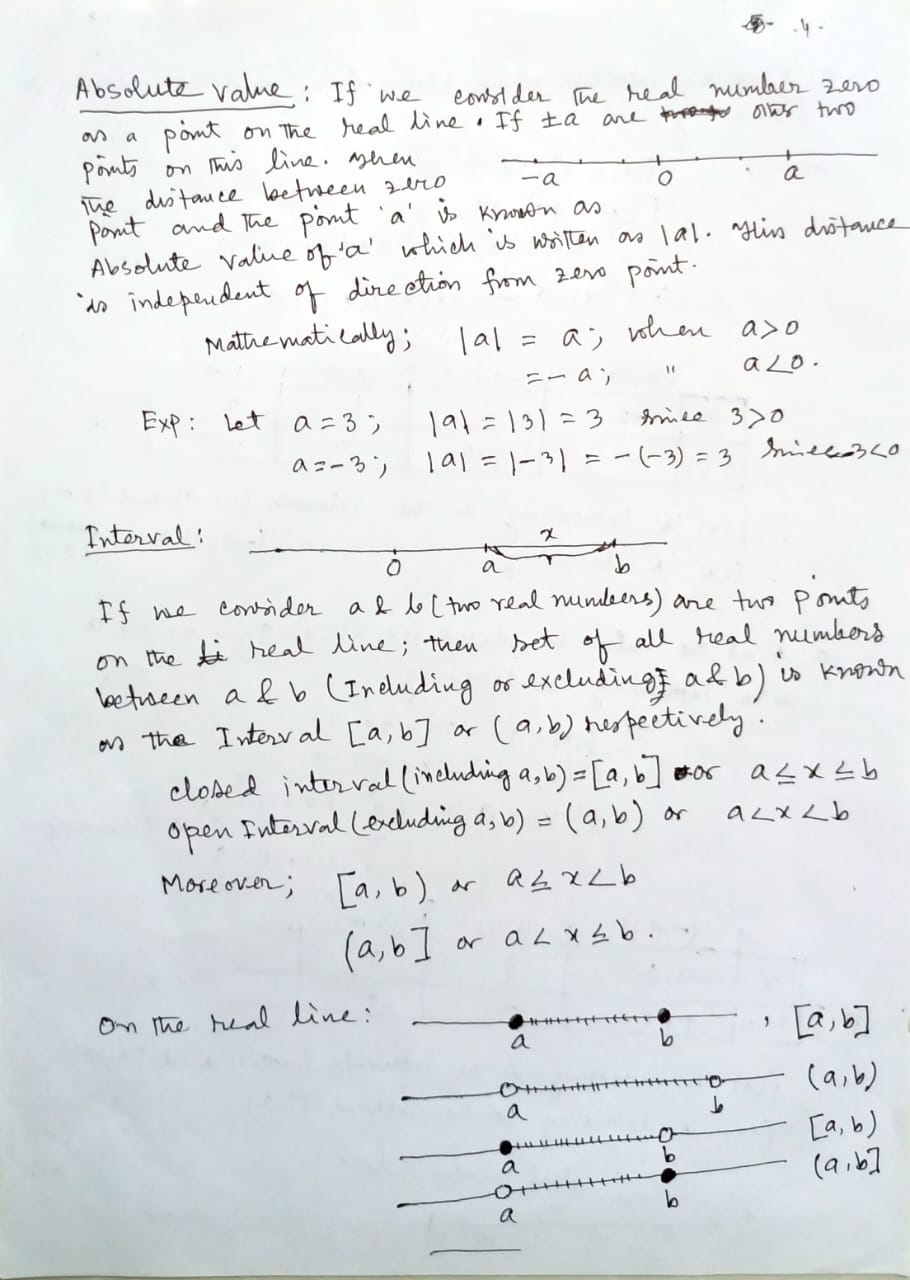 .4.
Absolute value : If we consider the real number zero
as a point on the real line. If ±a are other two
points on this line. Then
-a 0 a
the distance between zero
point and the point 'a' is known as
Absolute value of 'a' which is written as |a|. This distance
is independent of direction from zero point.
Mathematically; |a| = a; when a>0
= -a; " a<0.
Exp: Let a=3; |a| = |3| = 3 since 3>0
a=-3; |a| = |-3| = -(-3) = 3 since -3<0
Interval:
x
0 a b
If we consider a & b (two real numbers) are two points
on the real line; then set of all real numbers
between a & b (Including or excluding a & b) is known
as the Interval [a,b] or (a,b) respectively.
closed interval (including a,b) = [a,b] or a ≤ x ≤ b
open Interval (excluding a,b) = (a,b) or a < x < b
Moreover; [a,b) or a ≤ x < b
(a,b] or a < x ≤ b.
On the real line: a b , [a,b]
a b (a,b)
a b [a,b)
a b (a,b]